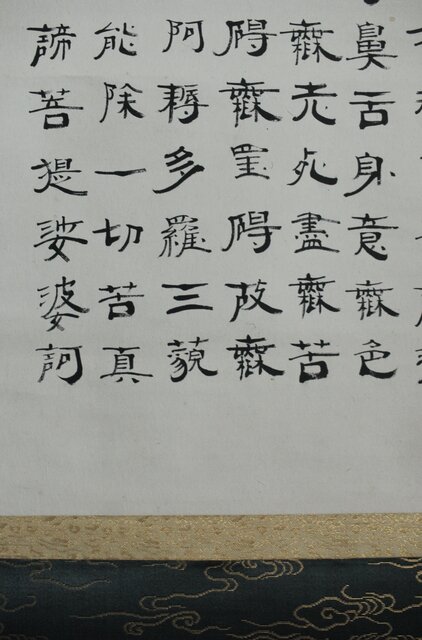 鼻舌身意無色
無老死盡無苦
碍無罣碍故無
阿耨多羅三藐
能除一切苦真
諦菩提娑婆訶